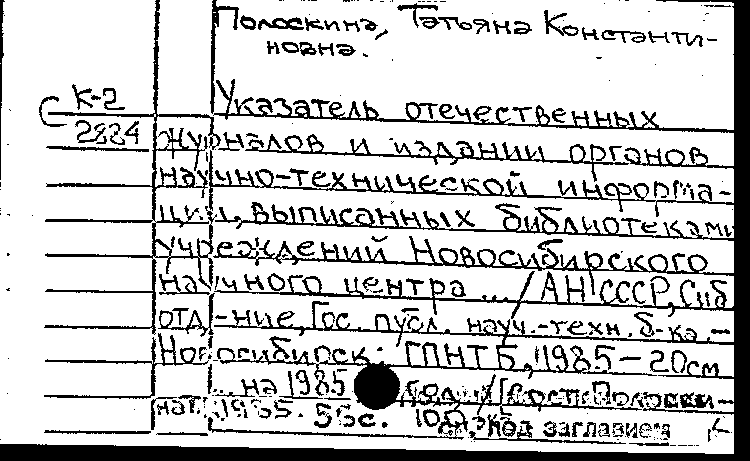 Полоскина, Татьяна Константи-
новна.
К-2
2884
Указатель отечественных
журналов и издании органов
научно-технической информа-
ции, выписанных библиотеками
учреждений Новосибирского
научного центра ... / АН СССР, Сиб.
отд-ние, Гос. публ. науч.-техн. б-ка. —
Новосибирск: ГПНТБ, 1985 — 20см
... на 1985 /Сост. Полоски-
на. 1985. 55с. 100 экз.
Под заглавием